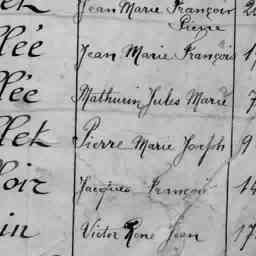 Jean Marie François 2
Pierre
llée Jean Marie François 1
llée Mathurin Jules Marie 7
llek Pierre Marie Joseph 9
loir Jacques François 14
in Victor René Jean 17